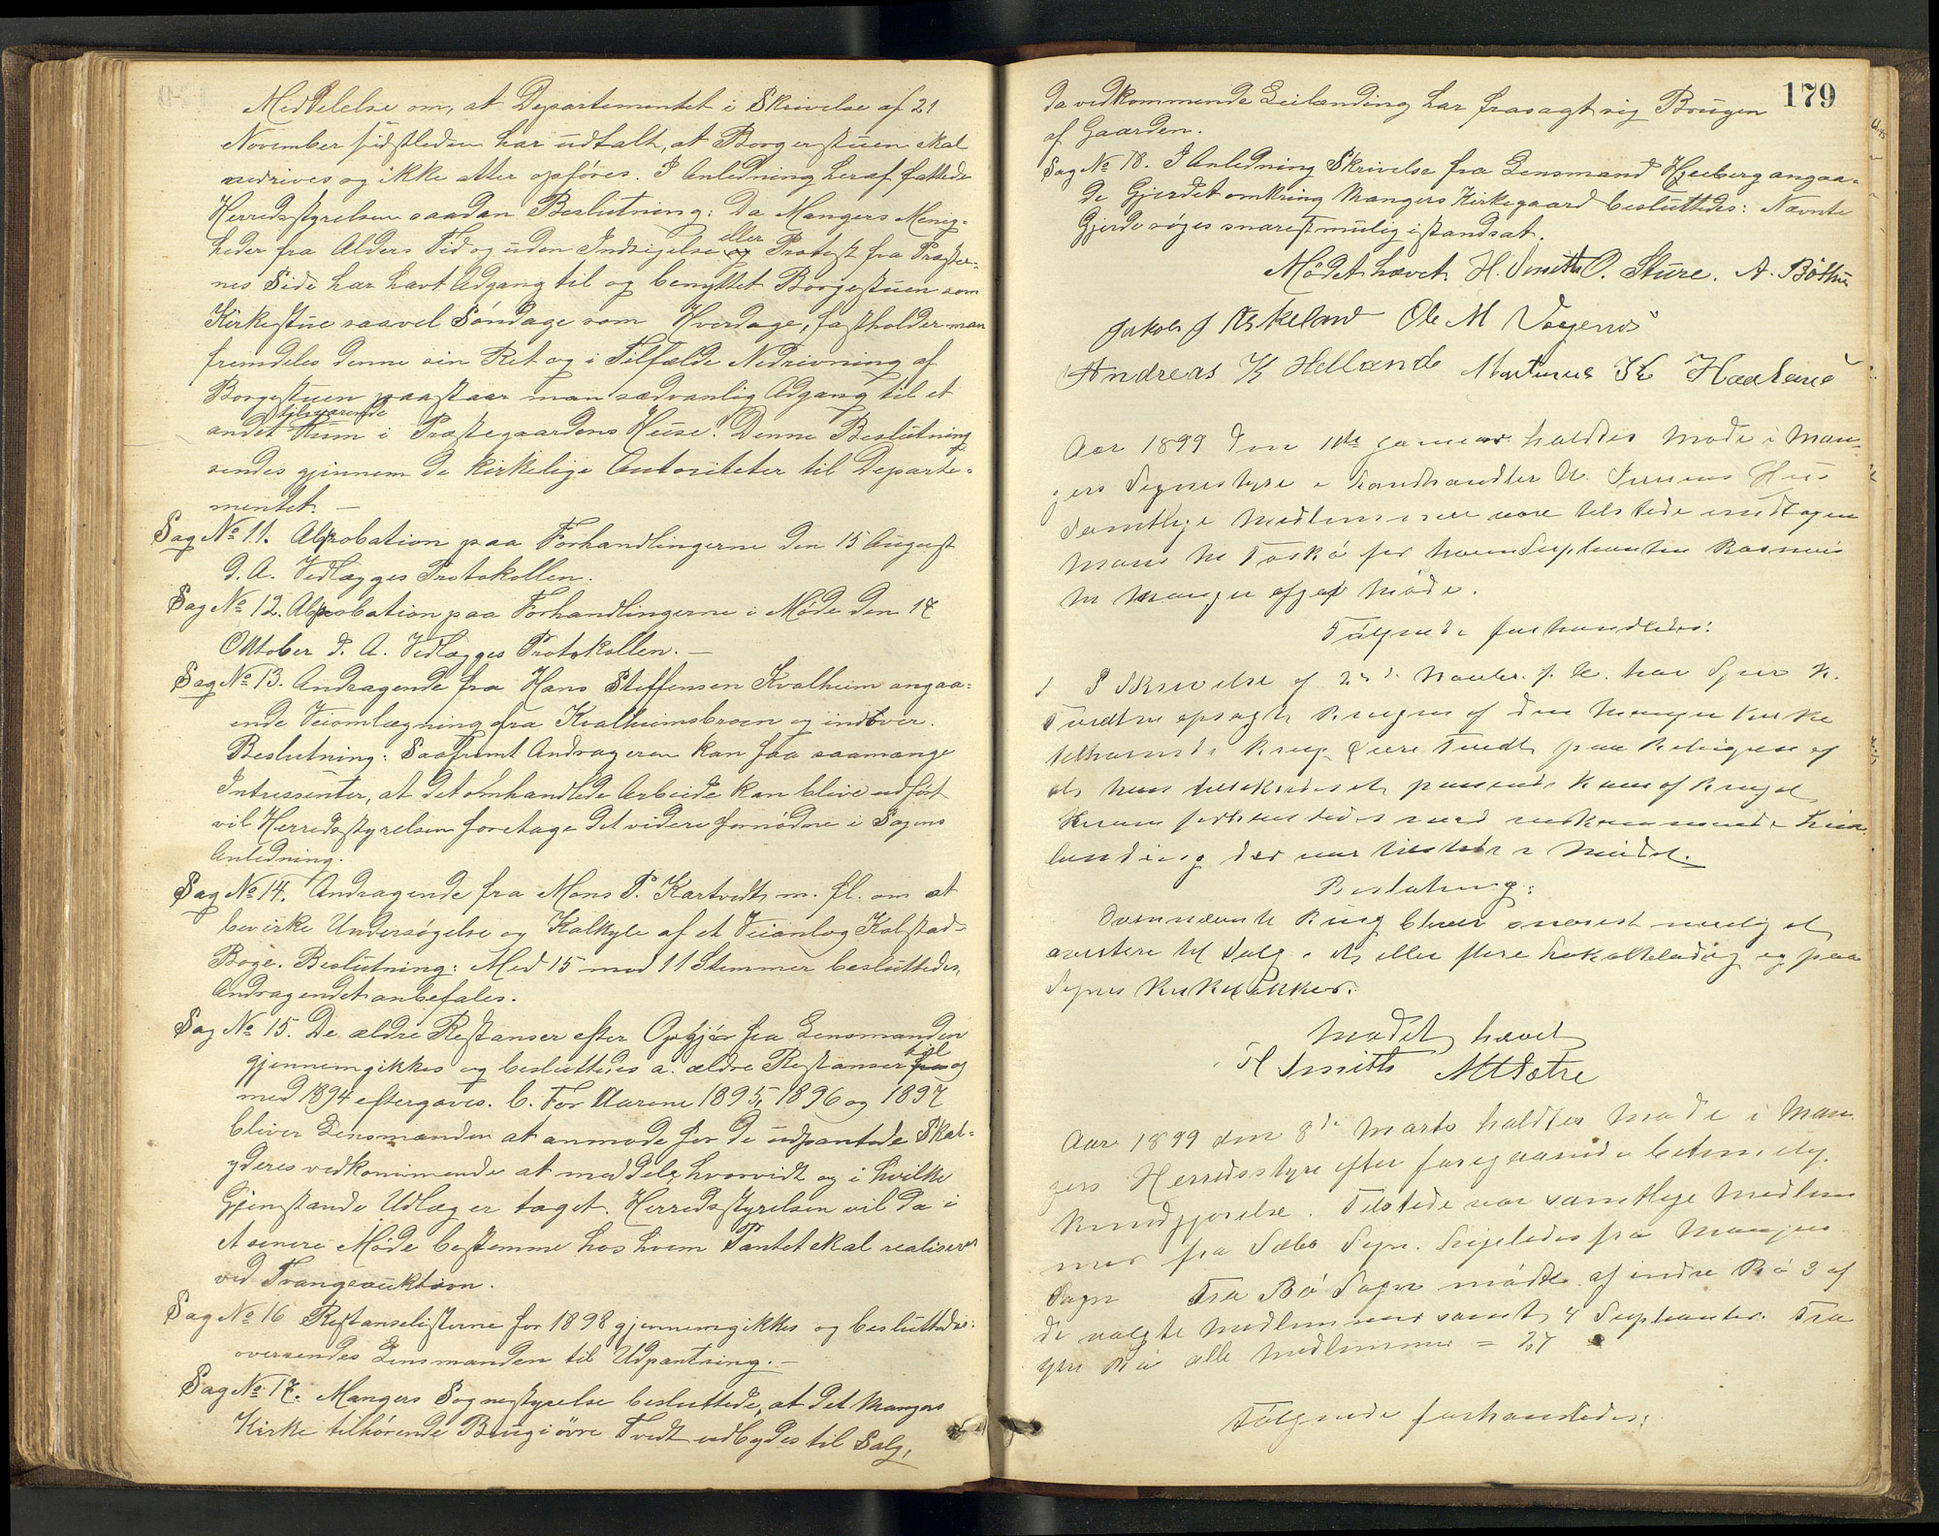 Meddelelse om, at Departementet i Skrivelse af 21
November sidstleden har udtalt, at Borgerstuen skal
nedrives og ikke atter opføres. I Anledning heraf fattede
Herredsstyrelsen saadan Beslutning: Da Mangers Menig-
heder fra Alders Tid og uden Indsigelse eller Protest fra Præster-
nes Side har havt Adgang til og benyttet Borgestuen som
Kirkestue saavel Søndage som Hverdage, fastholder man
fremdeles denne sin Ret og i Tilfælde Nedrivning af
Borgestuen paastaar man sædvanlig Adgang til et
andet tilsvarende Rum i Præstegaardens Huse. Denne Beslutning
sendes gjennem de kirkelige Autoriteter til Departe-
mentet. —
Sag No 11. Approbation paa Forhandlingerne den 15 August
d. A. Vedlægges Protokollen.
Sag No 12. Approbation paa Forhandlingerne i Møde den 17
Oktober d. A. Vedlægges Protokollen. —
Sag No 13. Andragende fra Hans Steffensen Kvalheim angaa-
ende Veiomlægning fra Kvalheimsbroen og indover.
Beslutning: Saafremt Andrageren kan faa saamange
Intressenter, at det omhandlede Arbeide kan blive udført
vil Herredsstyrelsen foretage det videre fornødne i Sagens
Anledning.
Sag No 14. Andragende fra Mons P. Kartvedt m. fl. om at
bevirke Undersøgelse og Kalkyle af et Veianlæg Kolstad-
Bøge. Beslutning: Med 15 mod 11 Stemmer besluttedes,
Andragendet anbefales.
Sag No 15. De ældre Restanser efter Opgjør fra Lensmanden
gjennemgikkes og besluttedes a. ældre Restanser til og
med 1894 eftergaves. b. For Aarene 1895, 1896 og 1897
bliver Lensmanden at anmode for de udpantede Skat-
yderes vedkommende at meddele, hvorvidt og i hvilke
Gjenstande Udlæg er taget. Herredsstyrelsen vil da i
et senere Møde bestemme hos hvem Pantet skal realiseres
ved Tvangsauktion.
Sag No 16 Restanselisterne for 1898 gjennemgikkes og besluttedes:
oversendes Lensmanden til Udpantning. —
Sag No 17. Mangers Sognestyrelse besluttede, at det Mangers
Kirke tilhørende Brug i øvre Tvedt udbydes til Salg,
179
da vedkommende Leilænding har frasagt sig Brugen
af Gaarden.
Sag No 18. I Anledning Skrivelse fra Lensmand Hjelberg angaa-
de Gjerdet omkring Mangers Kirkegaard besluttedes: Nævnte
Gjerde søges snarest mulig istandsat.
Mødet hævet. H. Smith O. Sture. A. Bøthun
Jakob J Askeland Ole M
Andreas K Helland Martinus
Aar 1899 den januar holdtes møde i Man-
gers Sognestyre i Landhandler Hus
Samtlige medlemmer vare tilstede undtagen
Mons M Toskø for ham Suplianten Rasmus
M Manger afgaf Møde.
Følgende forhandledes:
1 I Skrivelse af har
opsagt Brugen af den Manger Kirke
tilhørende Brug Øvre Tvedt paa Betingelse af
at
forhandledes med vedkommende Leie-
lending der var tilstede i Mødet.
Beslutning:
Fornævnte Brug bliver snarest mulig at
avertere til Salg i et eller flere Lokalblad og paa
Sognets Kirkebakker.
Mødet hævet
H Smith
Aar 1899 den 8de Marts holdtes møde i Man
gers Herredsstyre efter foregaaende betimelig
Kundgjørelse. Tilstede var samtlige Medlem
mer fra Sæbø Sogn. Ligeledes fra Mangers
Sogn Fra Bø Sogn mødte af indre Bø 3 af
de valgte medlemmer samt 4 Suplianter. Fra
ytre Bø alle Medlemmer = 27
Følgende forhandledes: